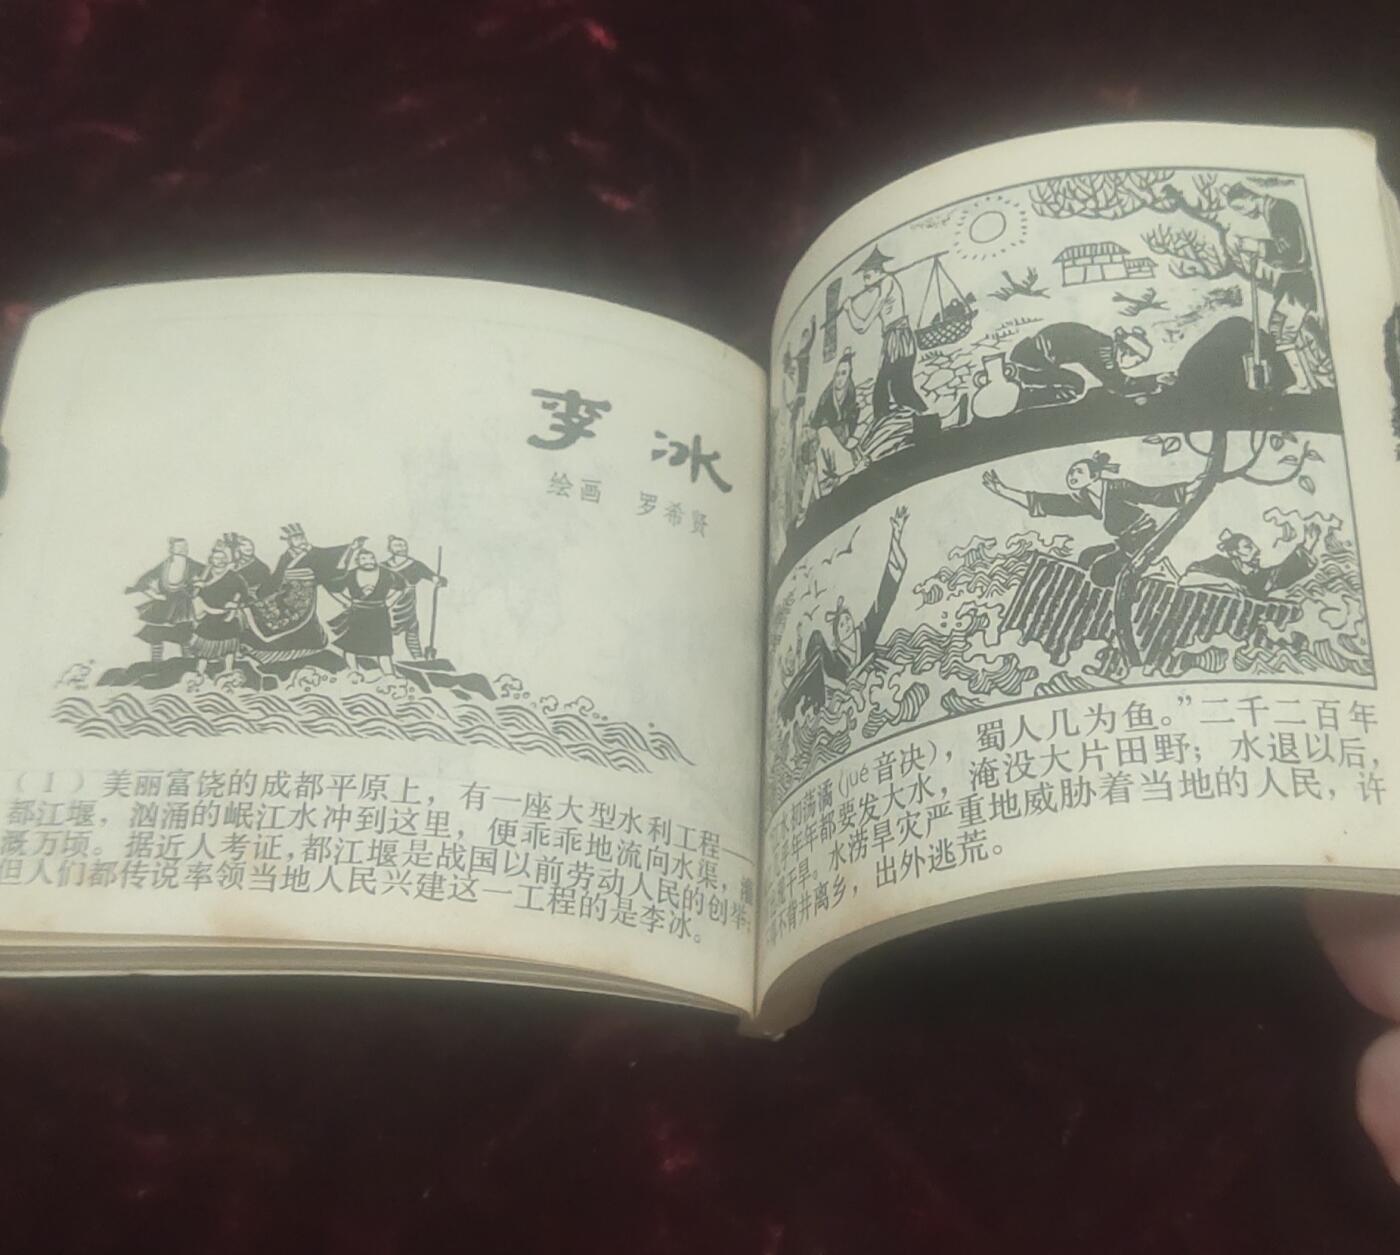 李冰
绘画 罗希贤
（1）美丽富饶的成都平原上，有一座大型水利工程——
都江堰，汹涌的岷江水冲到这里，便乖乖地流向水渠，灌
溉万顷。据近人考证，都江堰是战国以前劳动人民的创举；
但人们都传说率领当地人民兴建这一工程的是李冰。
水初荡潏（jué音决），蜀人几为鱼。”二千二百年
年年都要发大水，淹没大片田野；水退以后，
干旱。水涝旱灾严重地威胁着当地的人民，许
背井离乡，出外逃荒。